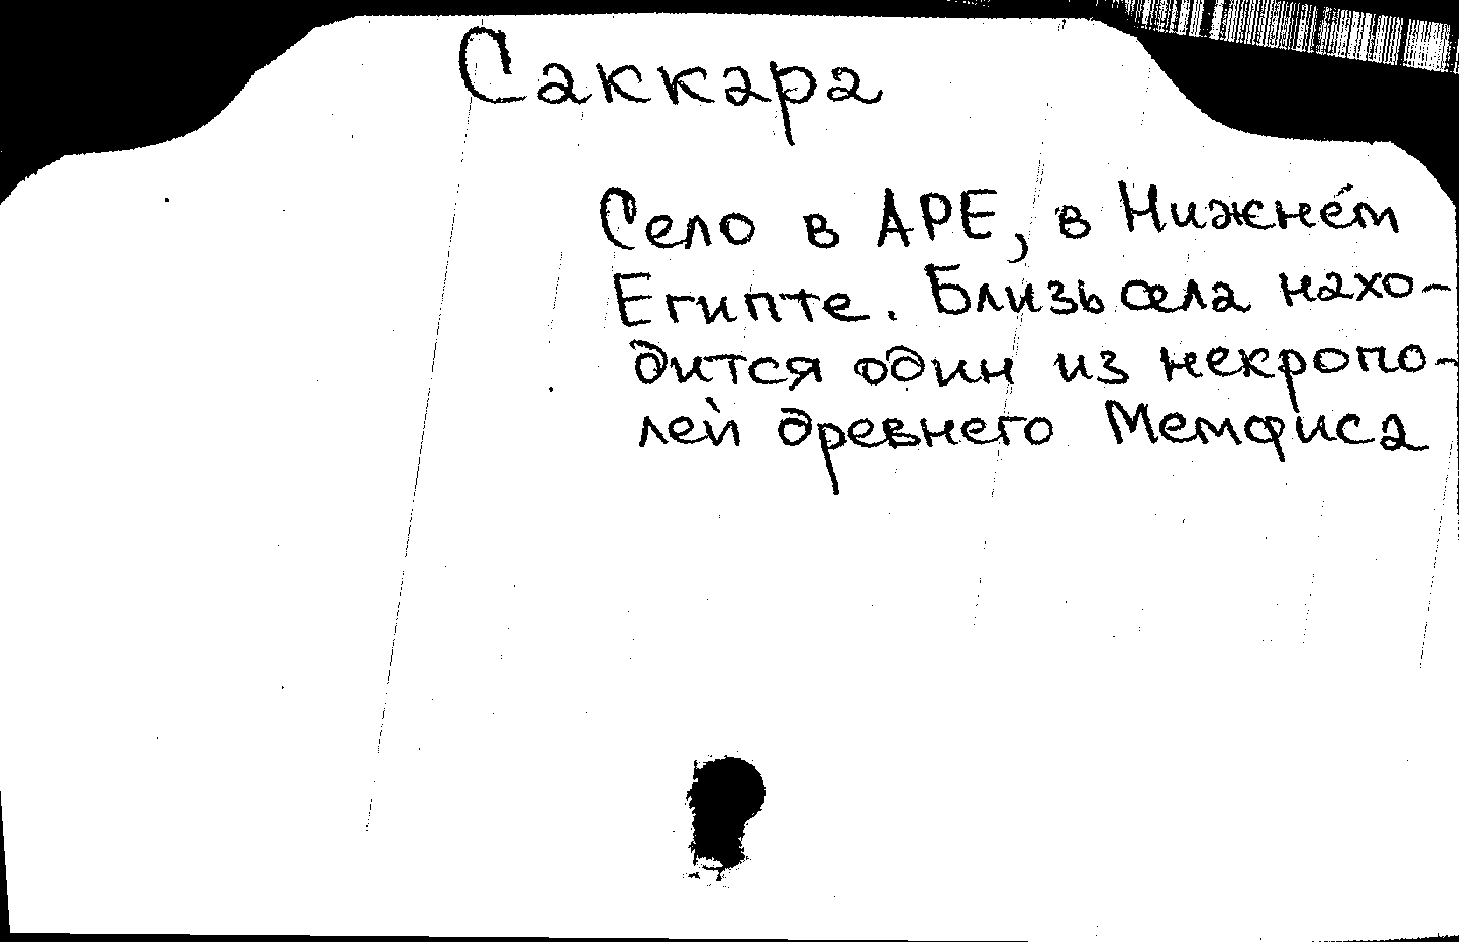 Саккара
Село в АРЕ, в Нижнем
Египте. Близь села нахо-
дится один из некропо-
лей древнего Мемфиса